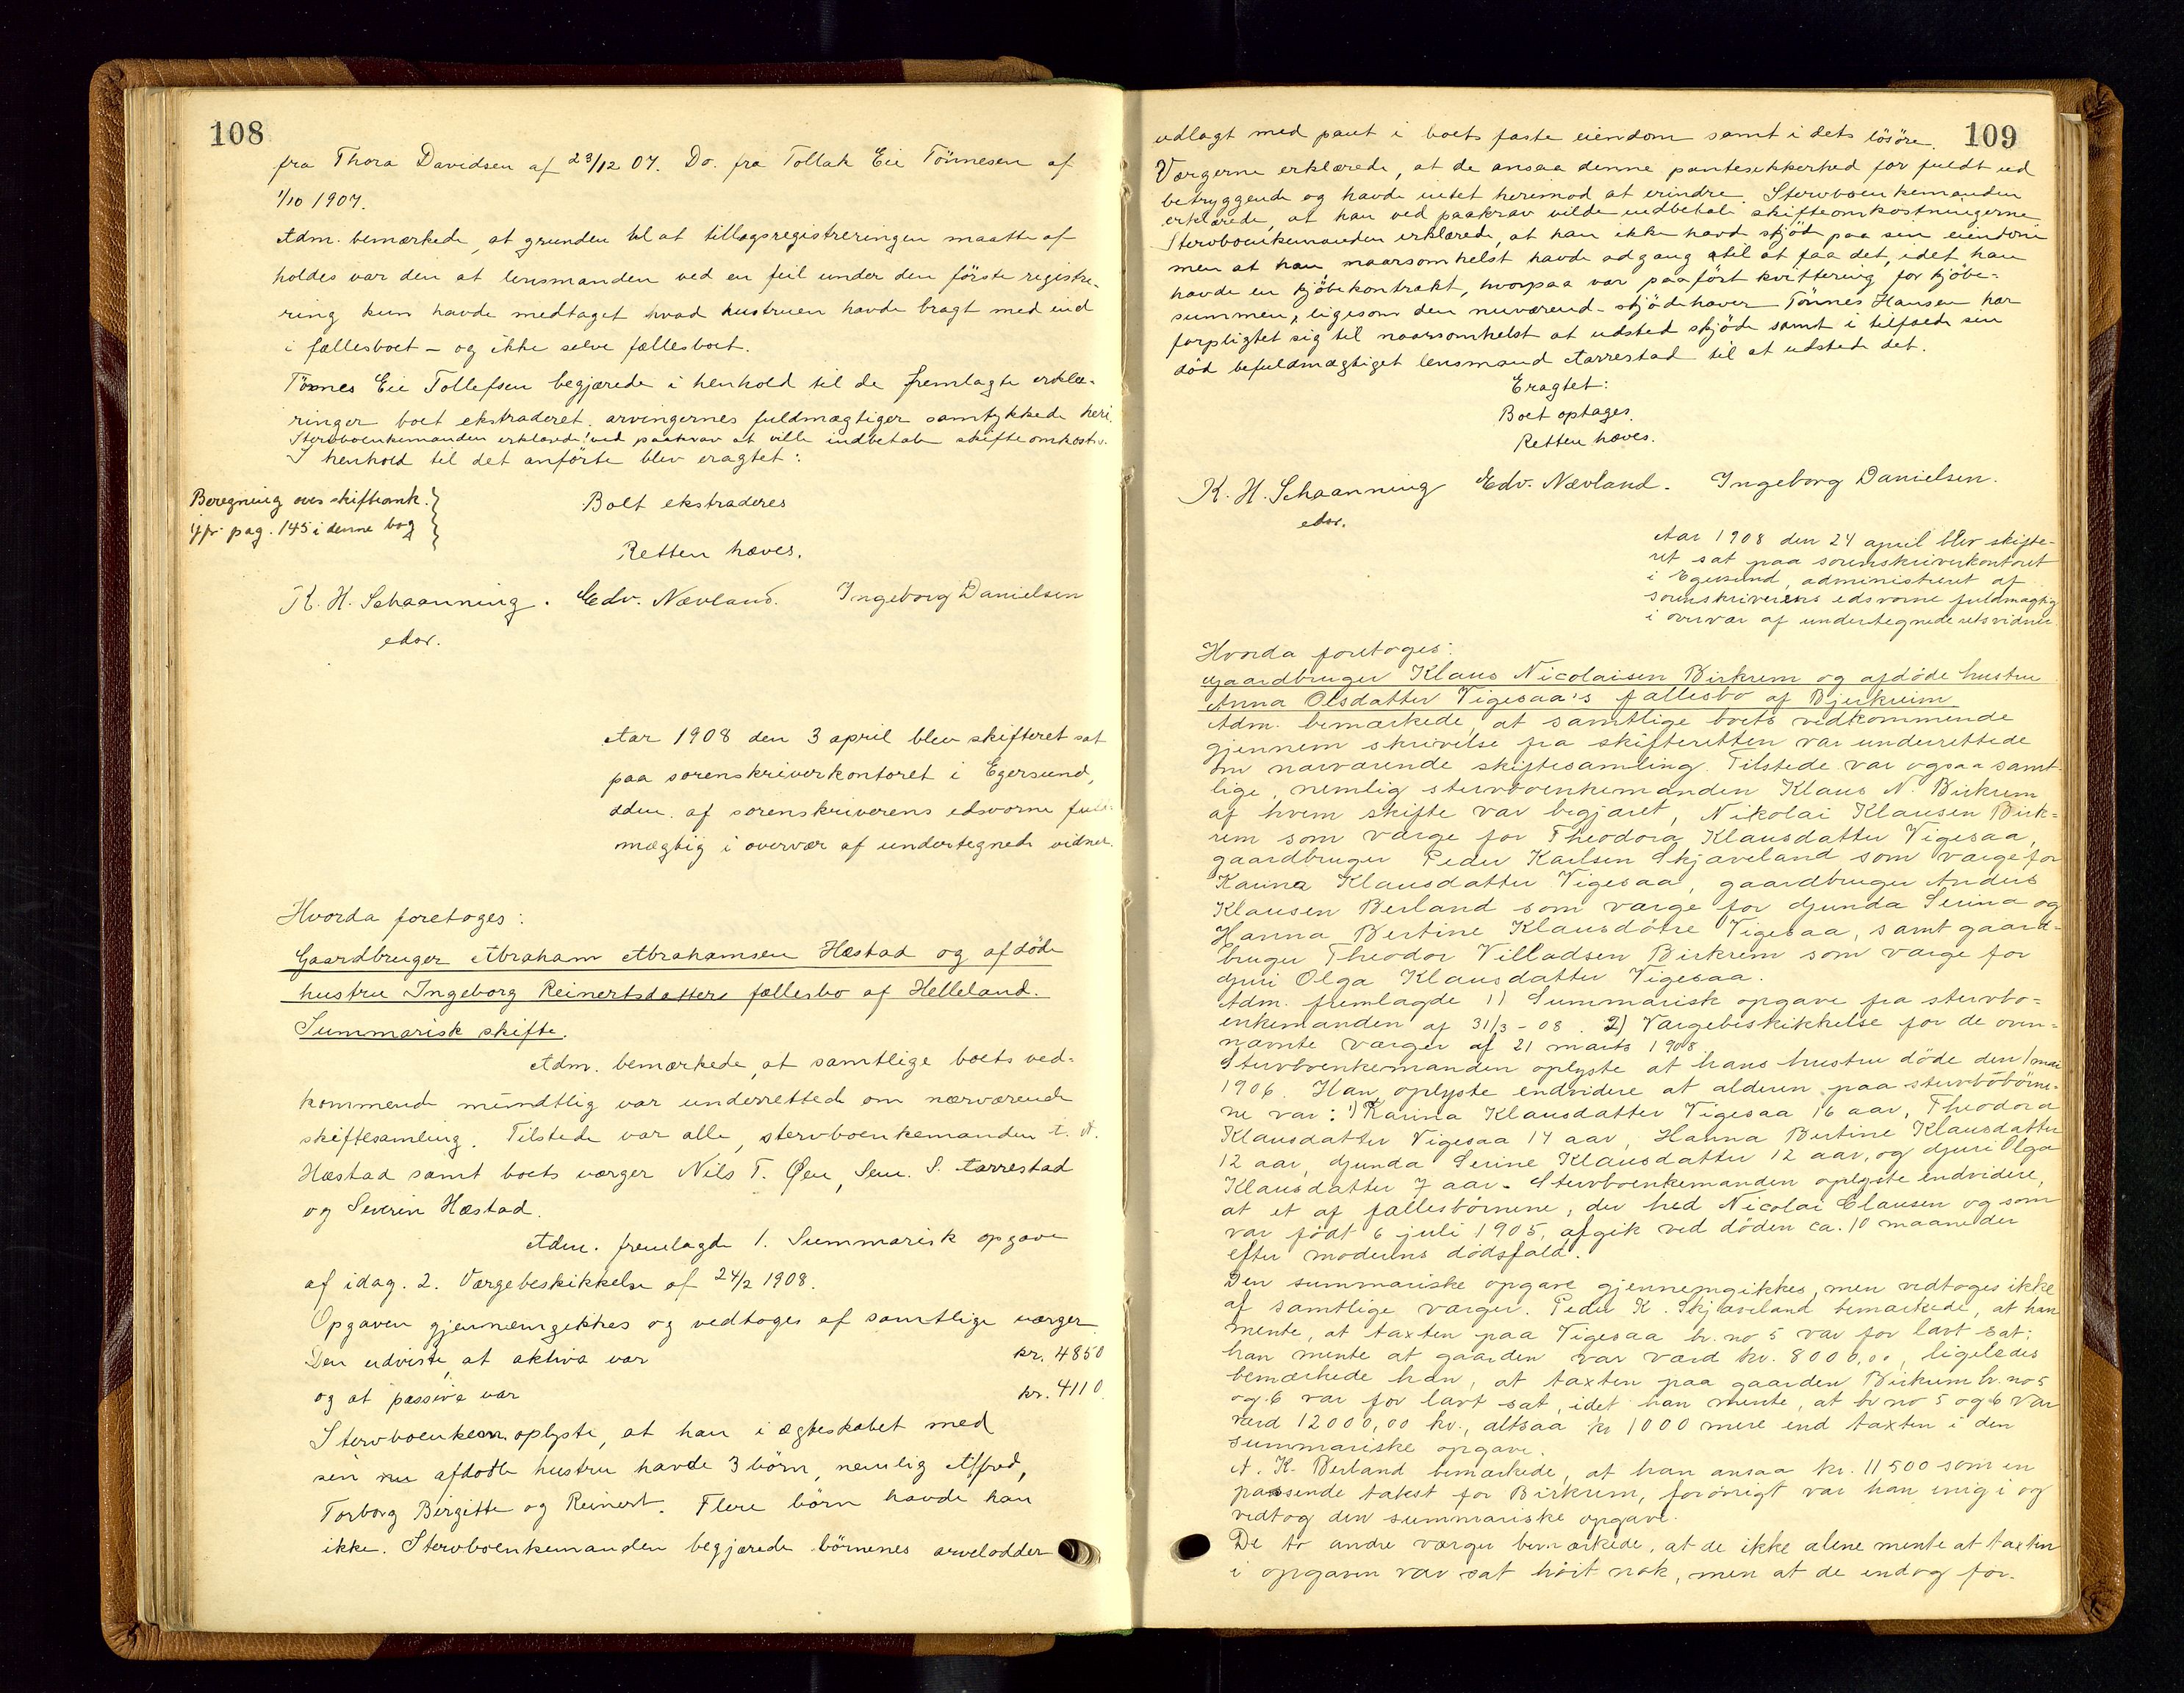 108
fra Thora Davidsen af 23/12 07. Do. fra Tollak Eie Tönnesen af
1/10 1907.
Adm. bemærkede, at grunden til at tillægsregistreringen maatte af
holdes var den at lensmanden ved en feil under den förste registre-
ring kun havde medtaget hvad hustruen havde bragt med ind
i fællesboet - og ikke selve fællesboet.
Tönnes Eie Tollefsen begjærede i henhold til de fremlagte erklæ-
ringer boet ekstraderet. arvingernes fuldmægtiger samtykkede heri.
Stervboenkemanden erklærede ved paakrav at ville indbetale skifteomkostn.
I henhold til det anförte blev eragtet:
Beregning over skifteomk.
jfr pag. 145 i denne bog
Boet ekstraderes
Retten hæves.
K. H. Schaanning. Edv. Nævland. Ingeborg Danielsen
edsv.
Aar 1908 den 3 april blev skifteret sat
paa sorenskriverkontoret i Egersund,
adm. af sorenskriverens edsvorne fuld-
mægtig i overvær af undertegnede vidner.
Hvorda foretoges:
Gaardbruger Abraham Abrahamsen Hæstad og afdöde
hustru Ingeborg Reinertsdatters fællesbo af Helleland.
Summarisk skifte.
Adm. bemærkede, at samtlige boets ved-
kommende mundtlig var underrettede om nærværende
skiftesamling. Tilstede var alle, stervboenkemanden A. A.
Hæstad samt boets værger Nils T. Øen, Sem. S. Aarrestad
og Severin Hæstad.
Adm. fremlagde 1. Summarisk opgave
af idag. 2. Værgebeskikkelse af 24/2 1908.
Opgaven gjennemgikkes og vedtoges af samtlige værger.
Den udviste, at aktiva var kr. 4850
og at passiva var kr. 4110.
Stervboenkem. oplyste, at han i ægteskabet med
sin nu afdöde hustru havde 3 börn, nemlig Alfred,
Torborg Birgitte og Reinert. Flere börn havde han
ikke. Stervboenkemanden begjærede börnenes arvelodder
109
udlagt med pant i boets faste eiendom samt i dets lösöre.
Værgerne erklærede, at de ansaa denne pantesikkerhed for fuldt ud
betryggende og havde intet herimod at erindre. Stervboenkemanden
erklærede, at han ved paakrav vilde indbetale skifteomkostningerne.
Stervboenkemanden erklærede, at han ikke havde skjöde paa sin eiendom
men at han naarsomhelst havde adgang til at faa det, idet han
havde en kjöbekontrakt, hvorpaa var paafört kvittering for kjöbe-
summen, ligesom den nuværende skjödehaver Tönnes Hansen har
forpligtet sig til naarsomhelst at udstede skjöde samt i tilfælde sin
död befuldmægtiget lensmand Aarrestad til at udstede det.
Eragtet:
Boet optages.
Retten hæves.
K. H. Schaanning Edv. Nævland. Ingeborg Danielsen.
edsv.
Aar 1908 den 24 april blev skifte-
ret sat paa sorenskriverkontoret
i Egersund, administreret af
sorenskriverens edsvorne fuldmægtig
i overvær af undertegnede retsvidner.
Hvorda foretoges:
Gaardbruger Klaus Nicolaisen Birkrem og afdöde hustru
Anna Olsdatter Vigesaa's fællesbo af Bjerkreim
Adm. bemærkede, at samtlige boets vedkommende
gjennem skrivelse fra skifteretten var underrettede
om nærværende skiftesamling. Tilstede var ogsaa samt-
lige, nemlig stervboenkemanden Klaus N. Birkrem
af hvem skifte var begjæret, Nikolai Klausen Birk-
rem som værge for Theodora Klausdatter Vigesaa,
gaardbruger Peder Karlsen Skjæveland som værge for
Karina Klausdatter Vigesaa, gaardbruger Anders
Klausen Berland som værge for Gunda Serina og
Hanna Bertine Klausdötre Vigesaa, samt gaard-
bruger Theodor Villadsen Birkrem som værge for
Guri Olga Klausdatter Vigesaa.
Adm. fremlagde 1) Summarisk opgave fra stervbo-
enkemanden af 31/3 - 08. 2) Værgebeskikkelse for de oven-
nævnte værger af 21 marts 1908.
Stervboenkemanden oplyste at hans hustru döde den 1 mai
1906. Han oplyste endvidere at alderen paa stervbobörne-
ne var: 1) Karina Klausdatter Vigesaa 16 aar, Theodora
Klausdatter Vigesaa 14 aar, Hanna Bertine Klausdatter
12 aar, Gunda Serine Klausdatter 12 aar, og Guri Olga
Klausdatter 7 aar. Stervboenkemanden oplyste endvidere,
at et af fællesbörnene, der hed Nicolai Clausen og som
var födt 6 juli 1905, afgik ved döden ca. 10 maaneder
efter moderens dödsfald.
Den summariske opgave gjennemgikkes, men vedtoges ikke
af samtlige værger. Peder K. Skjæveland bemærkede, at han
mente, at taxten paa Vigesaa br. no 5 var for lavt sat;
han mente at gaarden var værd kr. 8000,00, ligeledes
bemærkede han, at taxten paa gaarden Birkrem br. no 5
og 6 var for lavt sat, idet han mente, at br no 5 og 6 var
værd 12000,00 kr., altsaa kr 1000 mere end taxten i den
summariske opgave.
A. K. Berland bemærkede, at han ansaa kr. 11500 som en
passende takst for Birkrem, forövrigt var han enig i og
vedtog den summariske opgave.
De to andre værger bemærkede, at de ikke alene mente at taxten
i opgaven var sat höit nok, men at de endog for-